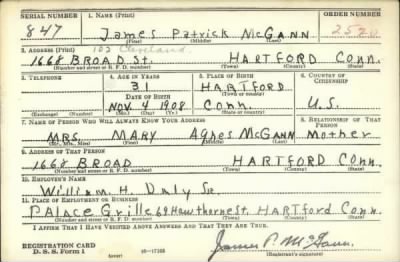 SERIAL NUMBER 1. NAME (Print) ORDER NUMBER
847 James Patrick McGANN 2520
(First) (Middle) (Last)
2. ADDRESS (Print) 102 Cleveland
1668 BROAD St. HARTFORD Conn.
(Number and street or R. F. D. number) (Town) (County) (State)
3. TELEPHONE 4. AGE IN YEARS 5. PLACE OF BIRTH 6. COUNTRY OF CITIZENSHIP
31 HARTFORD
DATE OF BIRTH (Town or county)
Nov. 4 1908 Conn. U.S.
(Exchange) (Number) (Mo.) (Day) (Yr.) (State or country)
7. NAME OF PERSON WHO WILL ALWAYS KNOW YOUR ADDRESS 8. RELATIONSHIP OF THAT PERSON
MRS. MARY Aghes McGANN Mother
(Mr., Mrs., Miss) (First) (Middle) (Last)
9. ADDRESS OF THAT PERSON
1668 BROAD HARTFORD Conn.
(Number and street or R. F. D. number) (Town) (County) (State)
10. EMPLOYER'S NAME
William H. Daly Sr
11. PLACE OF EMPLOYMENT OR BUSINESS
PALACE Grille 69 Hawthorne St. HARTford Conn.
(Number and street or R. F. D. number) (Town) (County) (State)
I AFFIRM THAT I HAVE VERIFIED ABOVE ANSWERS AND THAT THEY ARE TRUE.
REGISTRATION CARD
D. S. S. Form 1 (over) James P. McGann
(Registrant's signature)